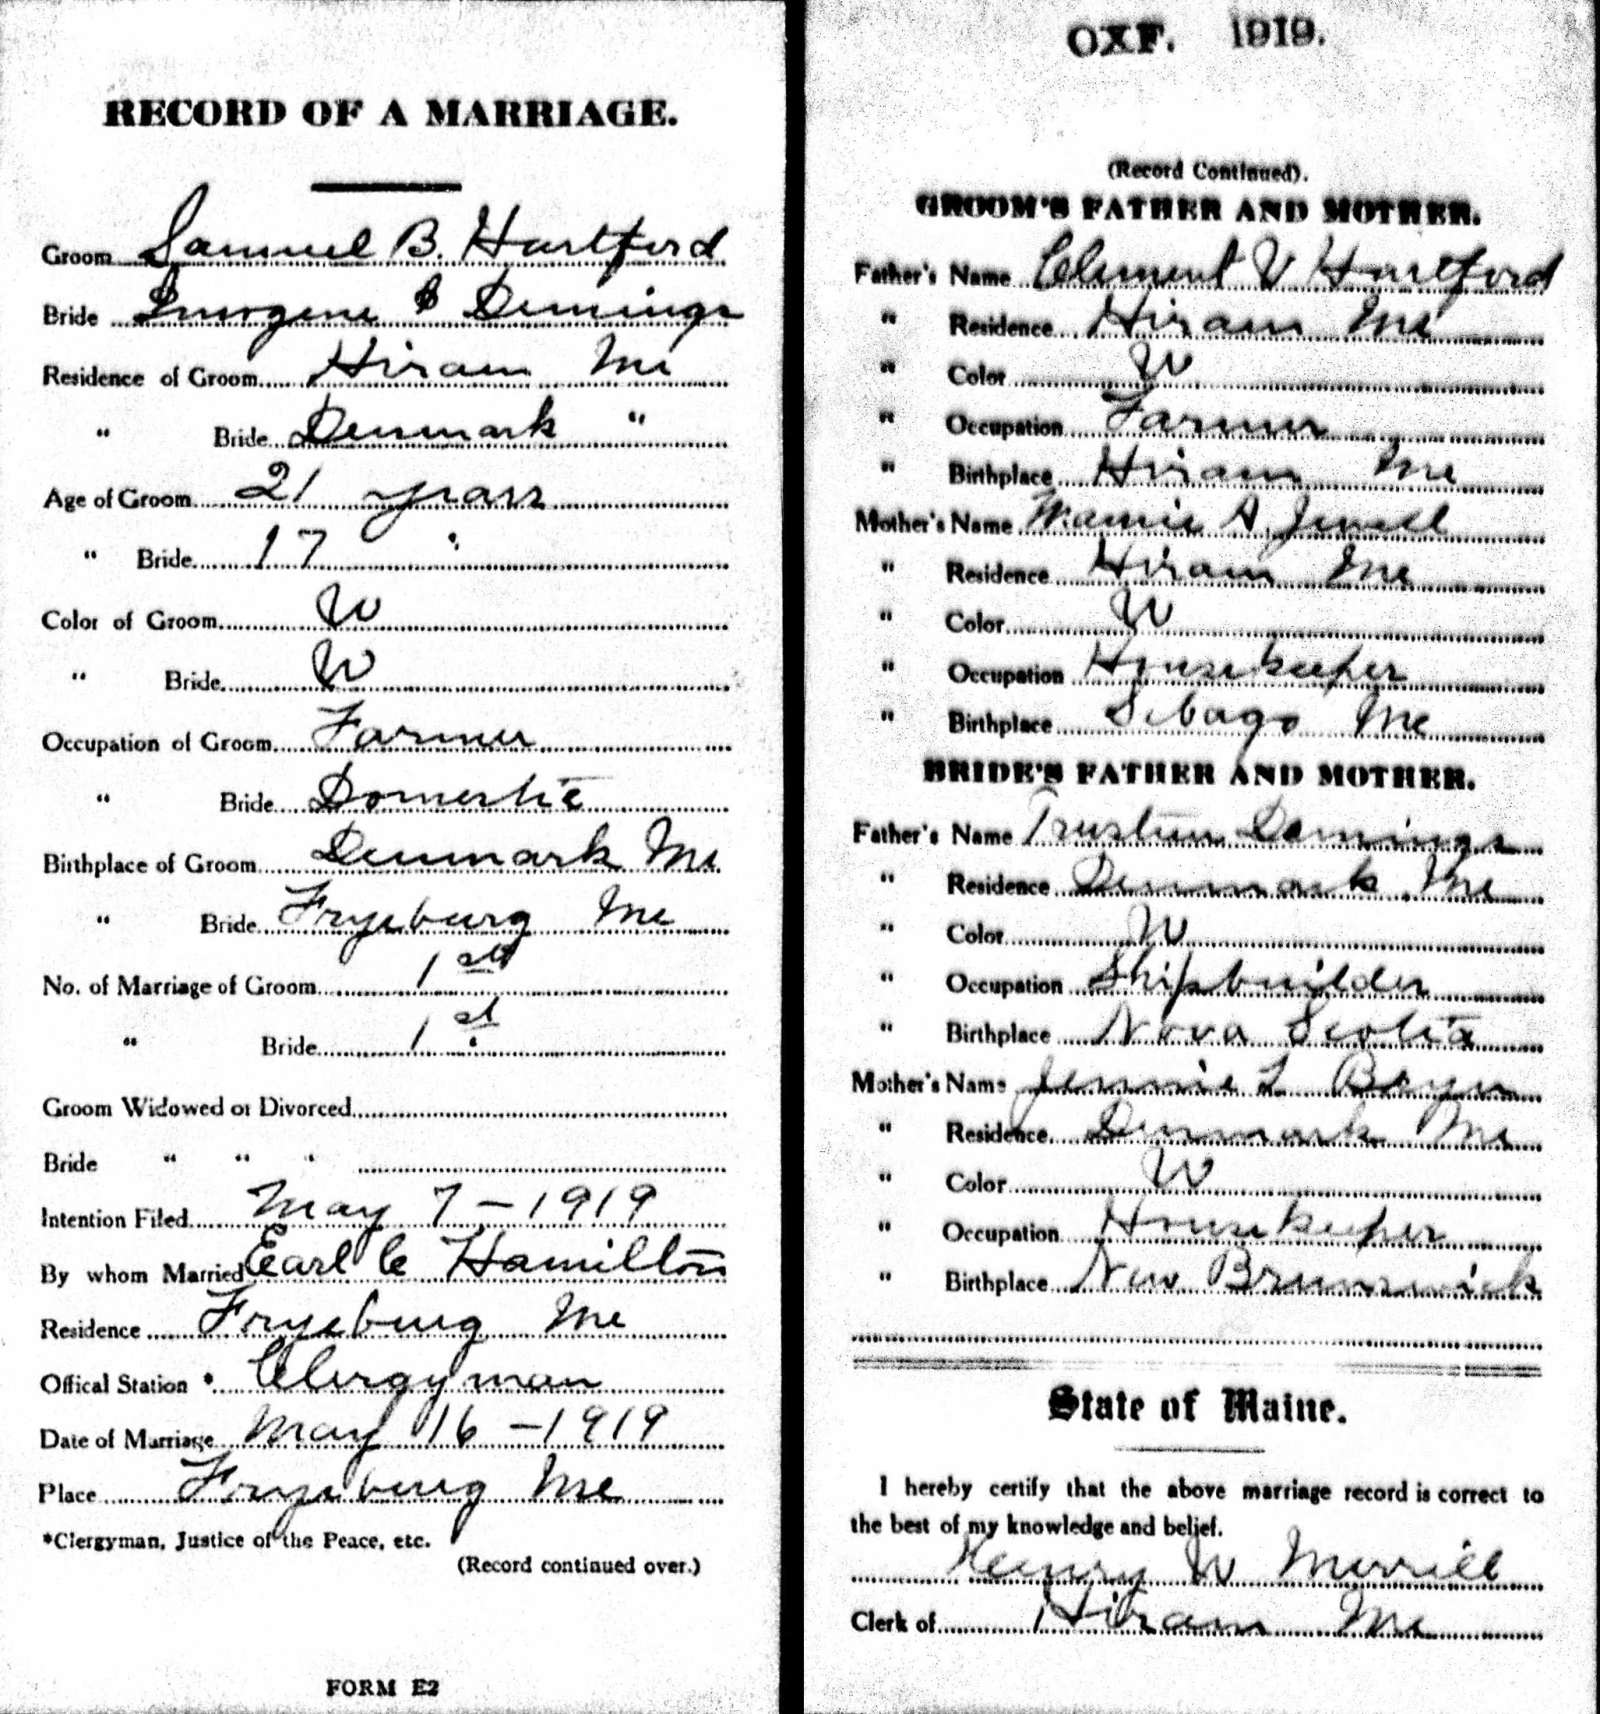 RECORD OF A MARRIAGE.
Groom Samuel B. Hartford
Bride Imogene Demings
Residence of Groom Hiram Me
" Bride Denmark "
Age of Groom 21 years
" Bride 17 "
Color of Groom W
" Bride W
Occupation of Groom Farmer
" Bride Domestic
Birthplace of Groom Denmark Me
" Bride Fryeburg Me
No. of Marriage of Groom 1st
" Bride 1st
Groom Widowed or Divorced
Bride " " "
Intention Filed May 7 - 1919
By whom Married Earl C Hamilton
Residence Fryeburg Me
Offical Station * Clergyman
Date of Marriage May 16 - 1919
Place Fryeburg Me
*Clergyman, Justice of the Peace, etc.
(Record continued over.)
FORM E2
OXF. 1919.
(Record Continued).
GROOM'S FATHER AND MOTHER.
Father's Name Clement V Hartford
" Residence Hiram Me
" Color W
" Occupation Farmer
" Birthplace Hiram Me
Mother's Name Mamie A. Jewell
" Residence Hiram Me
" Color W
" Occupation Housekeeper
" Birthplace Sebago Me
BRIDE'S FATHER AND MOTHER.
Father's Name Demings
" Residence Denmark Me
" Color W
" Occupation Shipbuilder
" Birthplace Nova Scotia
Mother's Name Jennie L
" Residence Denmark Me
" Color W
" Occupation Housekeeper
" Birthplace New Brunswick
State of Maine.
I hereby certify that the above marriage record is correct to
the best of my knowledge and belief.
Henry W Merrill
Clerk of Hiram Me